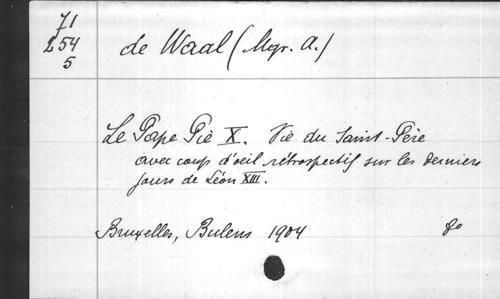 71
L 54
5
de Waal (Mgr. A.)
Le Pape Pie X. Vie du Saint-Père
avec coup d'oeil rétrospectif sur les derniers
jours de Léon XIII.
Bruxelles, Bulens 1904 8o